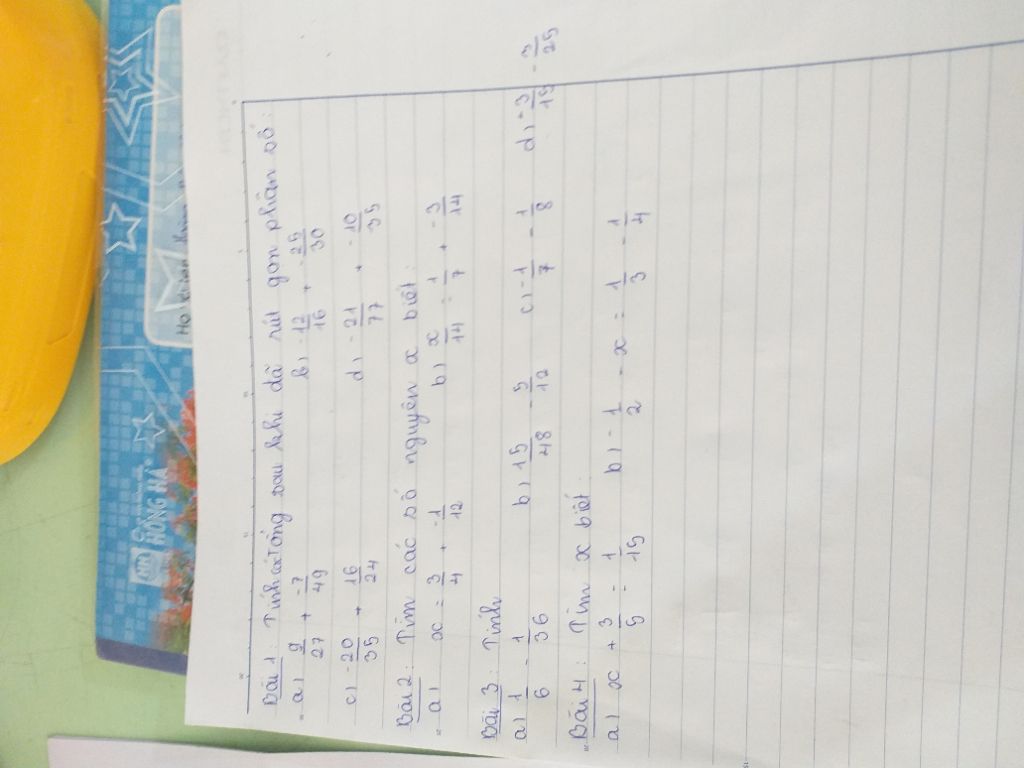 Bài 1: Tính các tổng sau khi đã rút gọn phân số:
a, 9/27 + -7/49 b, -12/16 + -25/30
c, -20/35 + 16/24 d, -21/77 + -10/35
Bài 2: Tìm các số nguyên x biết:
a, x = 3/4 + -1/12 b, x/14 = 1/7 + -3/14
Bài 3: Tính
a, 1/6 - 1/36 b, 15/48 - 5/12 c, -1/7 - 1/8 d, -3/15 - 3/25
Bài 4: Tìm x biết:
a, x + 3/5 - 1/15 b, -1/2 - x = 1/3 - 1/4
HỒNG HÀ